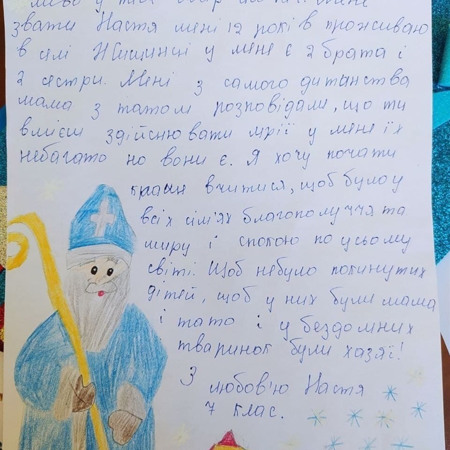 звати Настя мені 12 років я проживаю
в селі у мене є 2 брата і
2 сестри. Мені з самого дитинства
мама з татом розповідали, що ти
вмієш здійснювати мрії у мене їх
небагато но вони є. Я хочу почати
краще вчитися, щоб було у
всіх сім'ях благополуччя та
миру і спокою по усьому
світі. Щоб небуло покинутих
дітей, щоб у них були мама
і тато і у бездомних
тваринок були хазяї!
З любов'ю Настя
7 клас.